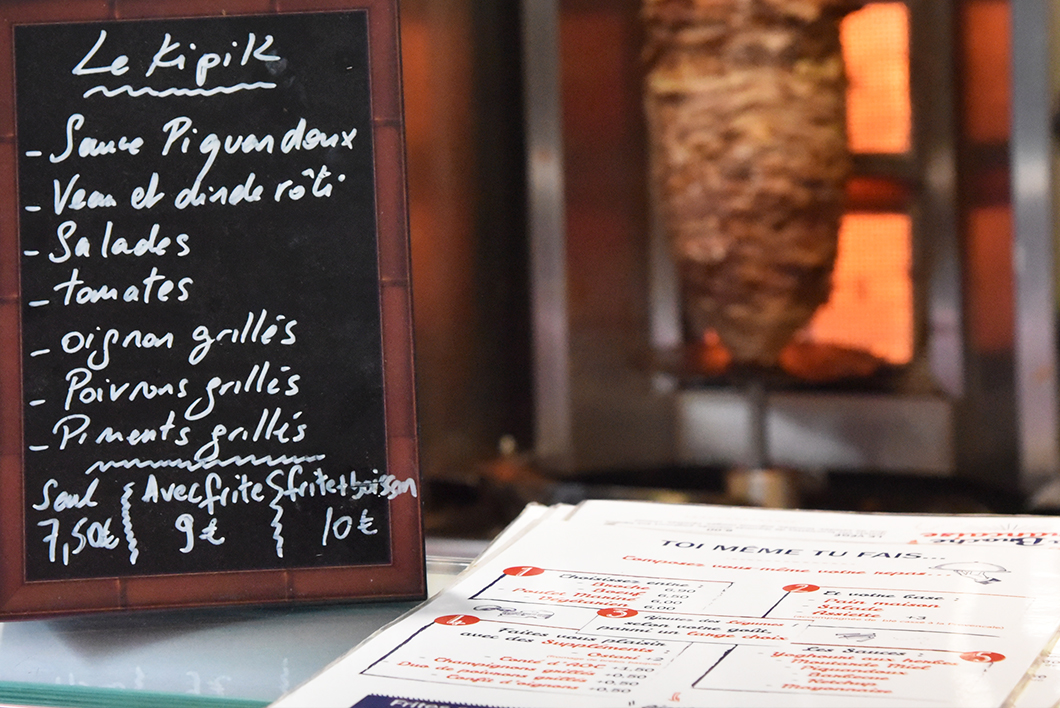 Le Kipik
- Sauce Piquandoux
- Veau et dinde rôti
- Salades
- tomates
- oignon grillés
- Poivrons grillés
- Piments grillés
Seul Avec frite frite + boisson
7,50€ 9€ 10€
TOI MÊME TU FAIS...
Composez vous-même votre repas...
1 Choisissez entre :
Broche 6,90
Boeuf 6,50
Poulet 6,00
6,00
2 Et votre base :
Pain maison
Salade
Assiette +3
3 Ajoutez des légumes
selon votre goût,
parmi un large choix
4 Faites vous plaisir
avec des Suppléments :
+2
Comté d'AOC +1,50
Champignons grillés +0,50
Duo poivrons grillés +0,50
Confit d'oignons +0,50
5 Les Sauces :
Yoghourt aux herbes
Barbecue
Ketchup
Mayonnaise
Frites